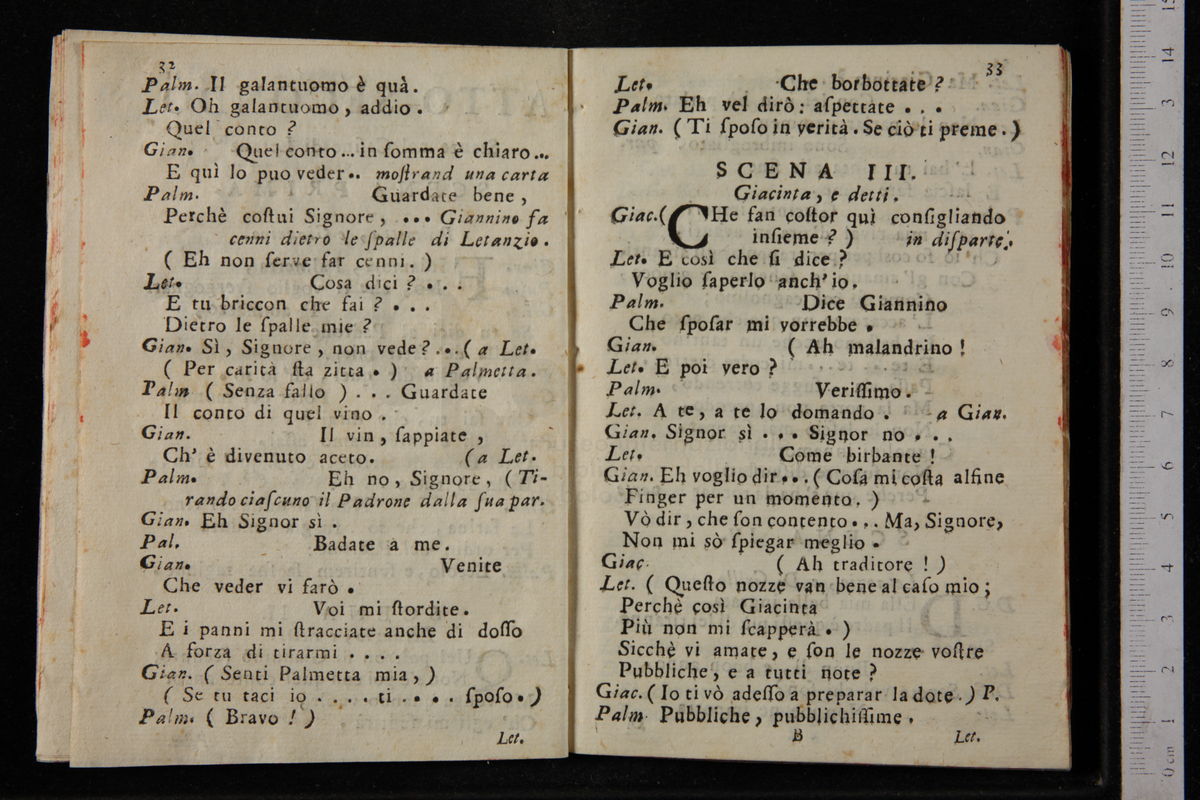 32
Palm. Il galantuomo è quà.
Let. Oh galantuomo, addio.
Quel conto ?
Gian. Quel conto... in ſomma è chiaro...
E quì lo puo veder.. moſtrand una carta
Palm. Guardate bene,
Perchè coſtui Signore, ... Giannino fa
cenni dietro le ſpalle di Letanzio.
( Eh non ſerve far cenni. )
Let. Cosa dici ? . . .
E tu briccon che fai ? . . .
Dietro le ſpalle mie ?
Gian. Sì, Signore, non vede?...( a Let.
( Per carità ſta zitta. ) a Palmetta.
Palm ( Senza fallo ) . . . Guardate
Il conto di quel vino .
Gian. Il vin, ſappiate ,
Ch' è divenuto aceto. (a Let.
Palm. Eh no, Signore, (Ti-
rando ciaſcuno il Padrone dalla ſua par.
Gian. Eh Signor sì .
Pal. Badate a me.
Gian. Venite
Che veder vi farò .
Let. Voi mi ſtordite.
E i panni mi ſtracciate anche di doſſo
A forza di tirarmi . . . .
Gian. ( Senti Palmetta mia, )
( Se tu taci io . . . . ti . . . . ſpoſo. )
Palm. ( Bravo ! )
Let.
33
Let. Che borbottate ?
Palm. Eh vel dirò: aſpettate . . .
Gian. ( Ti ſpoſo in verità. Se ciò ti preme. )
SCENA III.
Giacinta, e detti.
Giac.( CHe fan coſtor quì conſigliando
inſieme ? ) in diſparte.
Let. E così che ſi dice ?
Voglio ſaperlo anch' io.
Palm. Dice Giannino
Che ſpoſar mi vorrebbe .
Gian. ( Ah malandrino !
Let. E poi vero ?
Palm. Veriſſimo.
Let. A te, a te lo domando . a Gian.
Gian. Signor sì . . . Signor no . . .
Let. Come birbante !
Gian. Eh voglio dir... ( Coſa mi coſta alfine
Finger per un momento. )
Vò dir, che ſon contento... Ma, Signore,
Non mi sò ſpiegar meglio .
Giac. ( Ah traditore ! )
Let. ( Queſto nozze van bene al caſo mio ;
Perchè così Giacinta
Più non mi ſcapperà . )
Sicchè vi amate, e ſon le nozze voſtre
Pubbliche, e a tutti note ?
Giac. ( Io ti vò adeſſo a preparar la dote. ) P.
Palm. Pubbliche, pubblichiſſime .
B
Let.